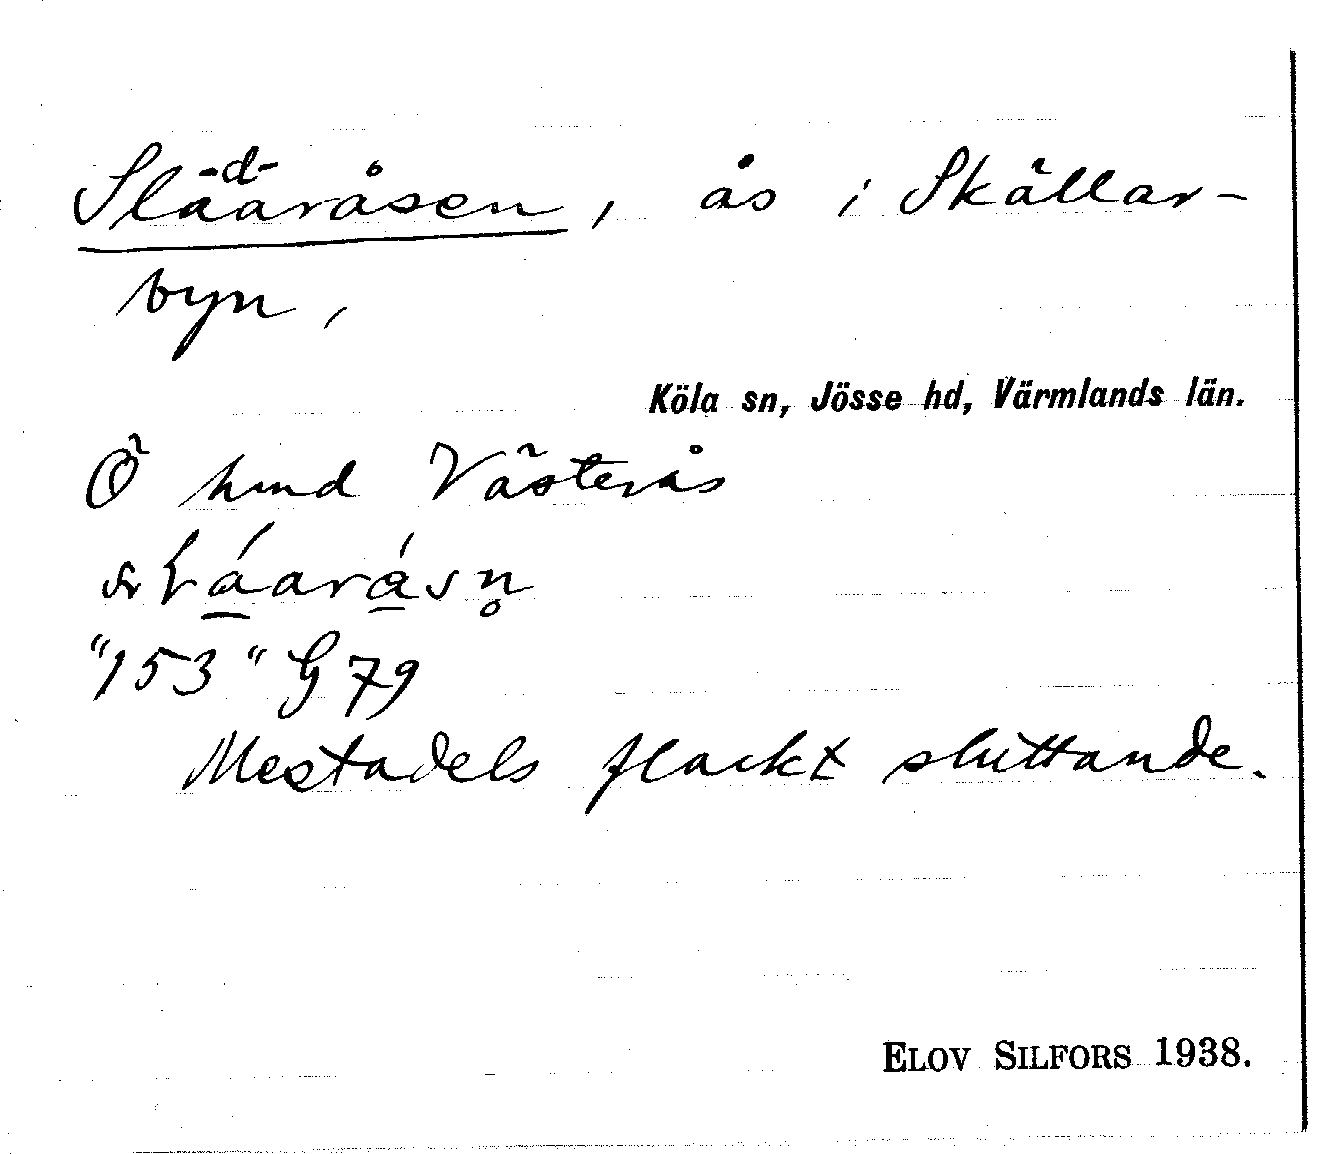 Slä-d-aråsen, ås i Skällar-
byn,
Köla sn, Jösse hd, Värmlands län.
Ö hmd Västerås
"153" G 79
Mestadels flackt sluttande.
ELOV SILFORS 1938.